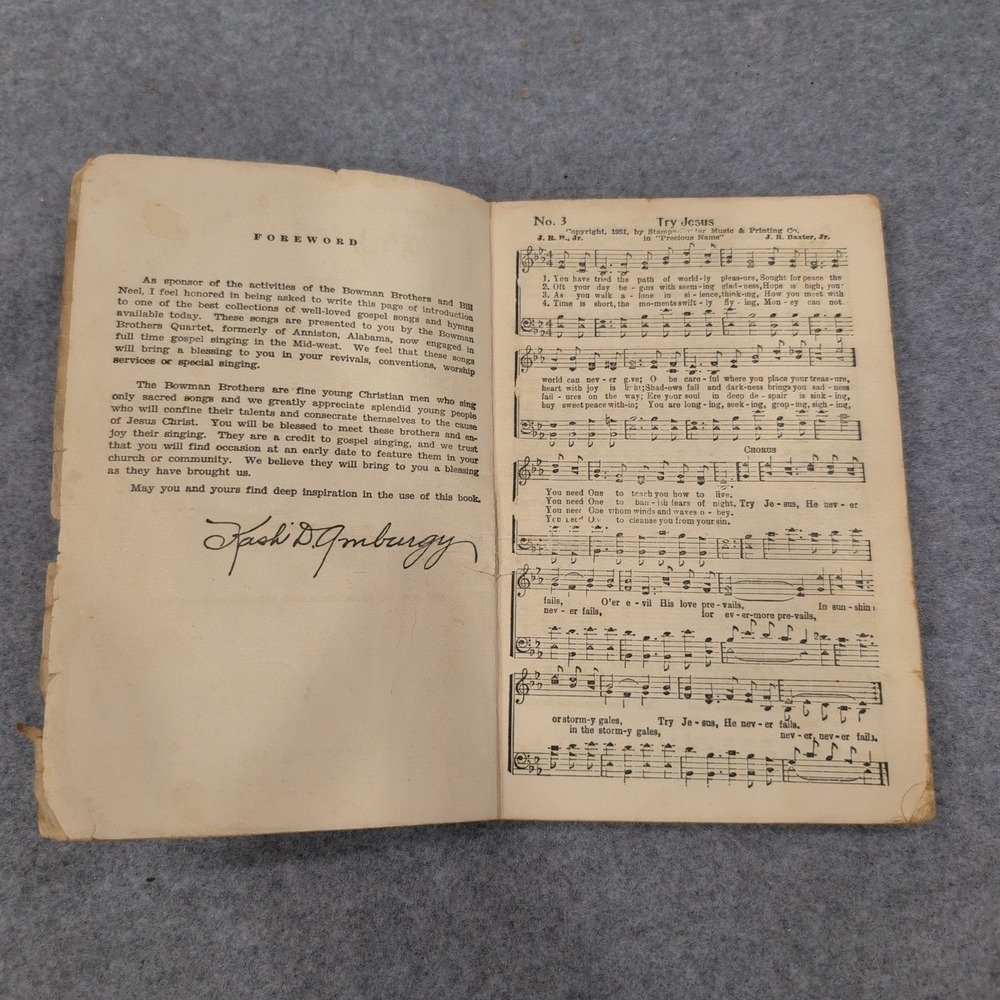 FOREWORD
As sponsor of the activities of the Bowman Brothers and Bill
Neel, I feel honored in being asked to write this page of introduction
to one of the best collections of well-loved gospel songs and hymns
available today. These songs are presented to you by the Bowman
Brothers Quartet, formerly of Anniston, Alabama, now engaged in
full time gospel singing in the Mid-west. We feel that these songs
will bring a blessing to you in your revivals, conventions, worship
services or special singing.
The Bowman Brothers are fine young Christian men who sing
only sacred songs and we greatly appreciate splendid young people
who will confine their talents and consecrate themselves to the cause
of Jesus Christ. You will be blessed to meet these brothers and en-
joy their singing. They are a credit to gospel singing, and we trust
that you will find occasion at an early date to feature them in your
church or community. We believe they will bring to you a blessing
as they have brought us.
May you and yours find deep inspiration in the use of this book.
Kash D. Amburgy
No. 3 Try Jesus
Copyright, 1951, by Music & Printing Co.
J. R. B., Jr. in "Precious Name" J. R. Baxter, Jr.
1. You have tried the path of world-ly pleas-ure, Sought for peace the
2. Oft your day be-gins with seem-ing glad-ness, Hope is high, you
3. As you walk a-lone in si-lence, think-ing, How you meet with
4. Time is short, the mo-ments swift-ly fly-ing, Mon-ey can not
world can nev-er give; O be care-ful where you place your treas-ure,
heart with joy is light; Shad-ows fall and dark-ness brings you sad-ness
fail-ures on the way; Ere your soul in deep de-spair is sink-ing,
buy sweet peace with-in; You are long-ing, seek-ing, grop-ing, sigh-ing,
CHORUS
You need One to teach you how to live.
You need One to ban-ish fears of night. Try Je-sus, He nev-er
You need One whom winds and waves o-bey.
You need One to cleanse you from your sin.
fails, O'er e-vil His love pre-vails, In sun-shine
nev-er fails, for ev-er-more pre-vails,
or storm-y gales, Try Je-sus, He nev-er fails.
in the storm-y gales, nev-er, nev-er fails.